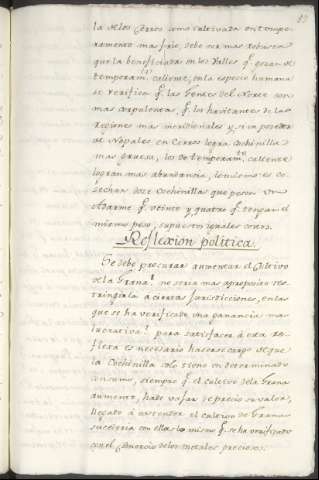 la de los Cerros como cultivada en tempe-
ramento mas frio, debe ser mas robusta
que la beneficiada en los Valles q.e gozan de
temperam.to caliente; en la especie humana
se verifica q.e las Gentes del Norte son
mas corpulentas, q.e los havitantes de las
regiones mas meridionales y si un posedor
de Nopales en Cerros logra Cochinilla
mas gruesa, los de temperam.to caliente
logran mas abundancia, lo mismo es co-
sechar doce Cochinillas que pesen un
Adarme q.e veinte y quatro q.e tengan el
mismo peso, supuestos iguales costos.
Reflexion politica.
Se debe procurar aumentar el Cultivo
de la Grana? no seria mas apropiado res-
tringirla a ciertas Jurisdicciones, en las
que se ha verificado una ganancia mas
lucrativa? para satisfacer à esta re-
flexa es necesario hacerse cargo de que
la Cochinilla solo tiene un determinado
consumo, siempre q.e el cultivo de la Grana
aumente, hade vajar de precio su valor,
llegado à estender el cultivo de Grana
sucederia con ella lo mismo q.e se ha verificado
con el de los metales preciosos.